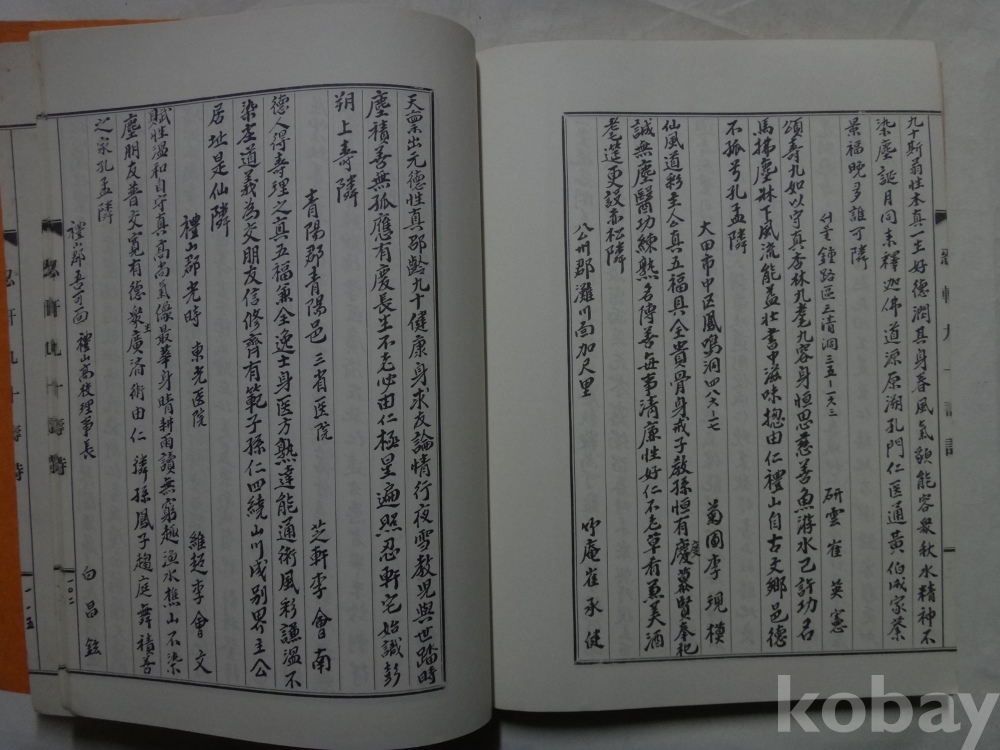 九十斯翁性本真一生好德潤其身春風氣貌能容衆秋水精神不
染塵誕月同來釋迦佛道源原溯孔門仁医通黃伯成家業
景福晚多誰可隣
서울 鍾路區三清洞三五-一六三 研雲 崔英憲
頌壽九如以守真杏林九耄九容身恒思慈善魚游水已許功名
馬拂塵牀下風流能益壯書中滋味揔由仁禮山自古文鄉邑德
不孤兮孔孟隣
大田市中区鳳鳴洞四六-七 菊圃李現模
仙風道彩主公真五福具全貴骨身戒子敎孫恒有慶慕賢奉祀
誠無塵醫功練熟名傳善每事清廉性好仁不老草有兼美酒
老莚更設赤松隣
公州郡灘川面加尺里 竹庵崔承健
天稟出元德性真邵齡九十健康身求友論情行夜雪敎児與世踏時
塵積善無孤應有慶長生不老必由仁極星遍照忍軒宅始識彭
朔上壽隣
青陽郡青陽邑 三省医院 芝軒李會南
德人得壽理之真五福兼全逸士身医方熟達能通術風彩謙溫不
染塵道義為交朋友信修齊有範子孫仁四繞山川成別界主公
居址是仙隣
禮山郡光時 東光医院 維超李會文
賦性溫和自守真高尚氣像最華身晴耕雨讀無窮趣漁水樵山不染
塵朋友普交寬有德衆主廣済術由仁 璘孫鳳子趨庭舞積善
之家孔孟隣
禮山郡吾可面 禮山高校理事長 白昌鉉
忍軒九十壽詩
一〇二
忍軒九十壽詩
一一五
kobay